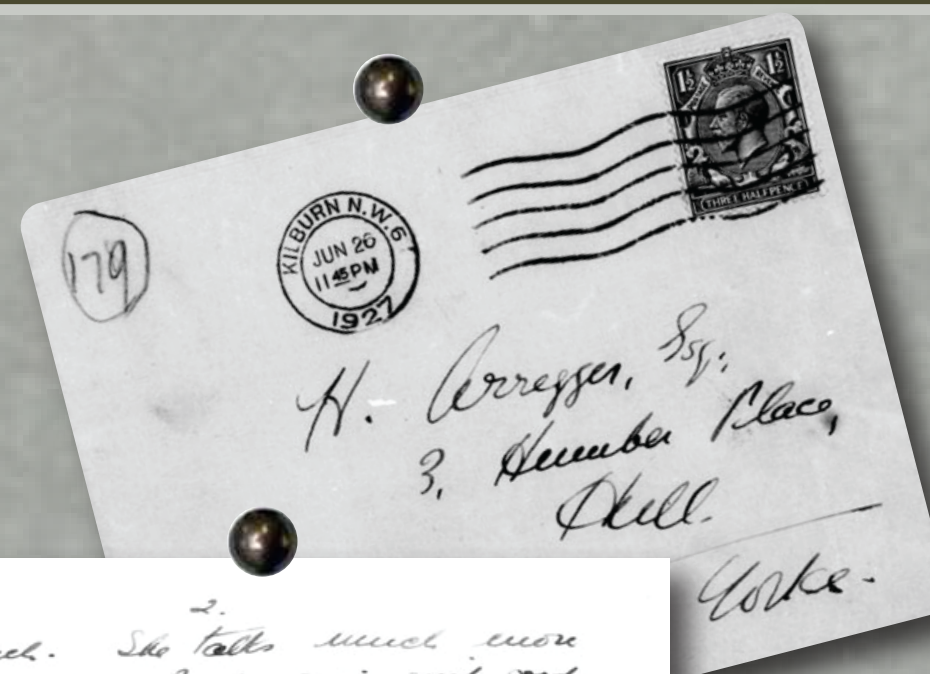 1½ 1½
THREE HALFPENCE
KILBURN N.W.6
JUN 26
11 45 PM
1927
179
H. Arregger, Esq.,
3, Humber Place,
Hull.
Yorks.
2.
She talks much more